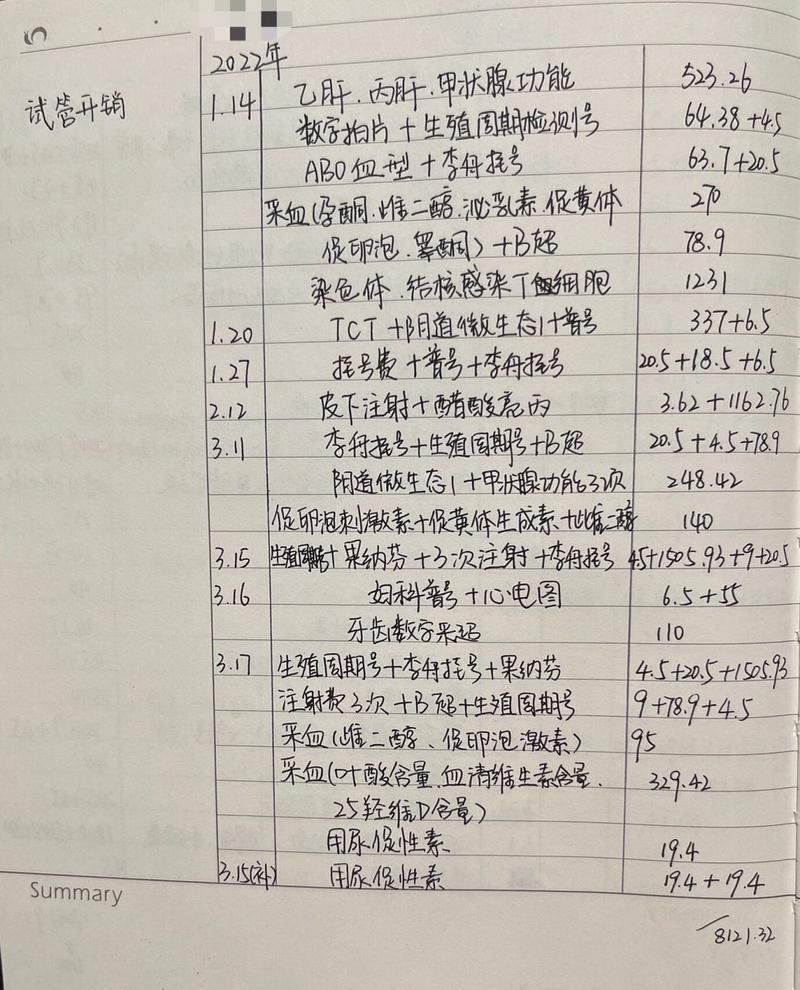 5
2022年
试管开销
1.14 乙肝.丙肝.甲状腺功能 523.26
数字拍片+生殖周期检测号 64.38+4.5
ABO血型+李舟挂号 63.7+20.5
采血(孕酮.雌二醇.泌乳素.促黄体 270
促卵泡.睾酮)+B超 78.9
染色体.结核感染T细胞 1231
1.20 TCT+阴道微生态1+普号 337+6.5
1.27 挂号费+普号+李舟挂号 20.5+18.5+6.5
2.12 皮下注射+醋酸亮丙 3.62+1162.76
3.11 李舟挂号+生殖周期号+B超 20.5+4.5+78.9
阴道微生态1+甲状腺功能3次 248.42
促卵泡刺激素+促黄体生成素+雌二醇 140
3.15 生殖周期+果纳芬+3次注射+李舟挂号 4.5+1505.93+9+20.5
3.16 妇科普号+心电图 6.5+55
牙齿数字采超 110
3.17 生殖周期号+李舟挂号+果纳芬 4.5+20.5+1505.93
注射费3次+B超+生殖周期号 9+78.9+4.5
采血(雌二醇、促卵泡激素) 95
采血(叶酸含量.血清维生素含量. 329.42
25羟维D含量)
用尿促性素 19.4
3.15(补) 用尿促性素 19.4+19.4
Summary
8121.32